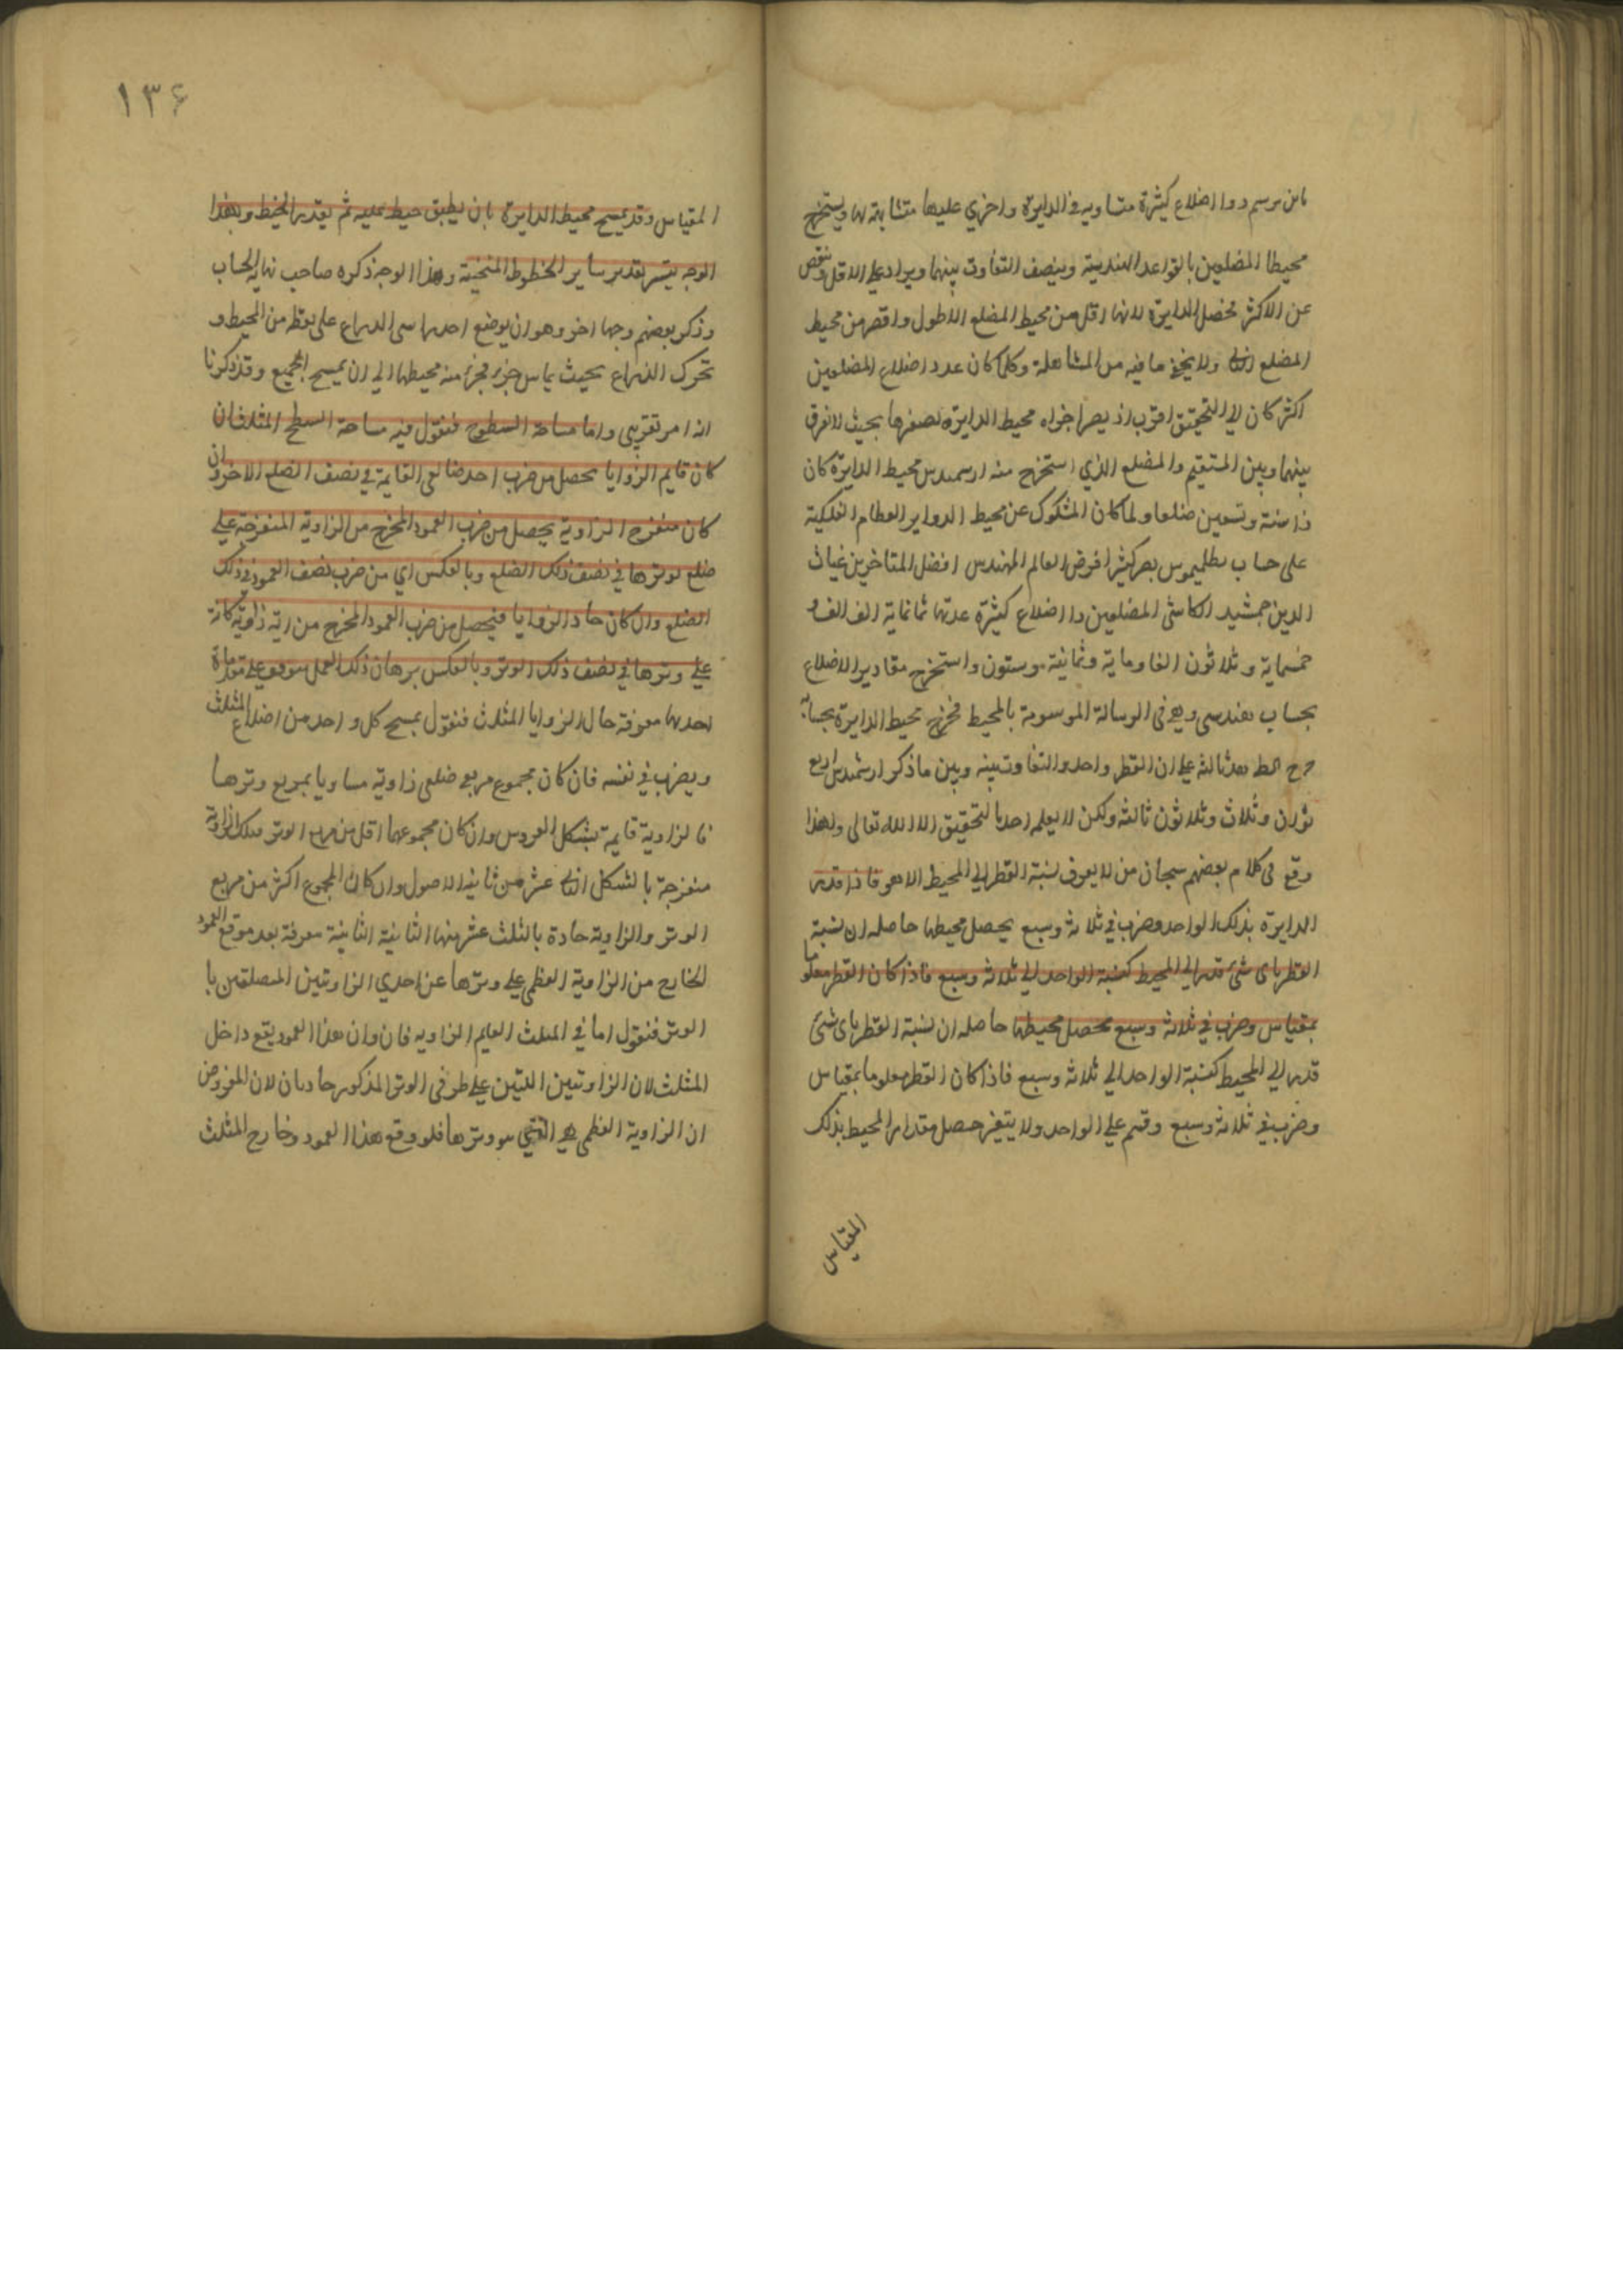 بان يرسم ذوا اضلاع كثيرة متساويه في الدايرة واخري عليها متشابهة لها ويستخرج
محيطا المضلعين بالقواعد الهندسية وينصف التفاوت بينهما ويزاد على الاقل وينقص
عن الاكثر يحصل الدايرة لانها اقل من محيط المضلع الاطول واقصر من محيط
المضلع ولا يخفي ما فيه من المساهلة وكلما كان عدد اضلاع المضلعين
اكثر كان الي التحقيق اقرب اذ يصير اجزاء محيط الدايرة لصغرها بحيث لا فرق
بينها وبين المستقيم والمضلع الذي استخرج منه ارسميدس محيط الدايرة كان
ذا ستة وتسعين ضلعا ولما كان المشكوك عن محيط الدواير العظام الفلكية
على حساب بطليموس يصير كثيرا فرض العالم المهندس افضل المتاخرين غياث
الدين جمشيد الكاشي المضلعين ذا اضلاع كثيرة عدتها ثمانماية الف الف و
خمسماية وثلاثون الفا وماية وثمانية وستون واستخرج مقادير الاضلاع
بحساب هندسي وهو في الرسالة الموسومة بالمحيط فخرج محيط الدايرة بحسابه
ثالثة على ان القطر واحد والتفاوت بينه وبين ما ذكر ارشميدس اربع
ثوان وثلاث وثلاثون ثالثة ولكن لا يعلم احد بالتحقيق الا الله تعالى ولهذا
وقع في كلام بعضهم سبحان من لا يعرف نسبة القطر الي المحيط الا هو فاذا قدر
الدايرة بذلك الواحد وضرب في ثلاثة وسبع يحصل محيطها حاصله ان نسبة
القطر باي شئ قدر الي المحيط كنسبة الواحد الي ثلاثة وسبع فاذا كان القطر معلوما
بمقياس وضرب في ثلاثة وسبع يحصل محيطها حاصله ان نسبة القطر باي شئ
قدر الي المحيط كنسبة الواحد الي ثلاثة وسبع فاذا كان القطر معلوما بمقياس
وضرب في ثلاثة وسبع وقسم علي الواحد ولا يتغير حصل مقدار المحيط بذلك
المقياس
١٣۶
المقياس وقد يمسح محيط الدايرة بان يطبق خيط عليه ثم يقدر الخيط وبهذا
الوجه يتيسر تقدير ساير الخطوط المنحنية وهذا الوجه ذكره صاحب نهاية الحساب
وذكر بعضهم وجها اخر وهو ان يوضع احد راسي الذراع على نقطه من المحيط و
تحرك الذراع بحيث يماس جزء فجزء منه محيطها الي ان يمسح الجميع وقد ذكرنا
انه امر تقريبي واما مساحة السطوح فنقول فيه مساحة السطح المثلث ان
كان قايم الزوايا يحصل من ضرب احد ضلعي القايمة في نصف الضلع الاخر وان
كان منفرج الزاوية يحصل من ضرب العمود المخرج من الزاوية المنفرجة علي
ضلع يوترها في نصف ذلك الضلع وبالعكس اي من ضرب نصف العمود في ذلك
الضلع وان كان حاد الزوايا فيحصل من ضرب العمود المخرج من اية زاوية كانت
علي وترها في نصف ذلك الوتر وبالعكس برهان ذلك العمل موقوف على مقدمات
احدها معرفة حال الزوايا المثلث فنقول يمسح كل واحد من اضلاع المثلث
ويضرب في نفسه فان كان مجموع مربعي ضلعي زاوية مساويا بمربع وترها
فالزاوية قايمة بشكل العروس وان كان مجموعهما اقل من مربع الوتر فتلك الزاوية
منفرجة بالشكل عشر من ثانية الاصول وان كان المجموع اكثر من مربع
الوتر والزاوية حادة بالثلث عشر منها الثانية الثانية معرفة بعد موقع العمود
الخارج من الزاوية العظمي علي وترها عن احدي الزاويتين المتصلتين با
الوتر فنقول اما في المثلث القايم الزاويه فان وان هذا العمود يقع داخل
المثلث لان الزاويتين اللتين علي طرفي الوتر المذكور حادتان لان المفروض
ان الزاوية العظمي هي التي وترها فلو وقع هذا العمود خارج المثلث